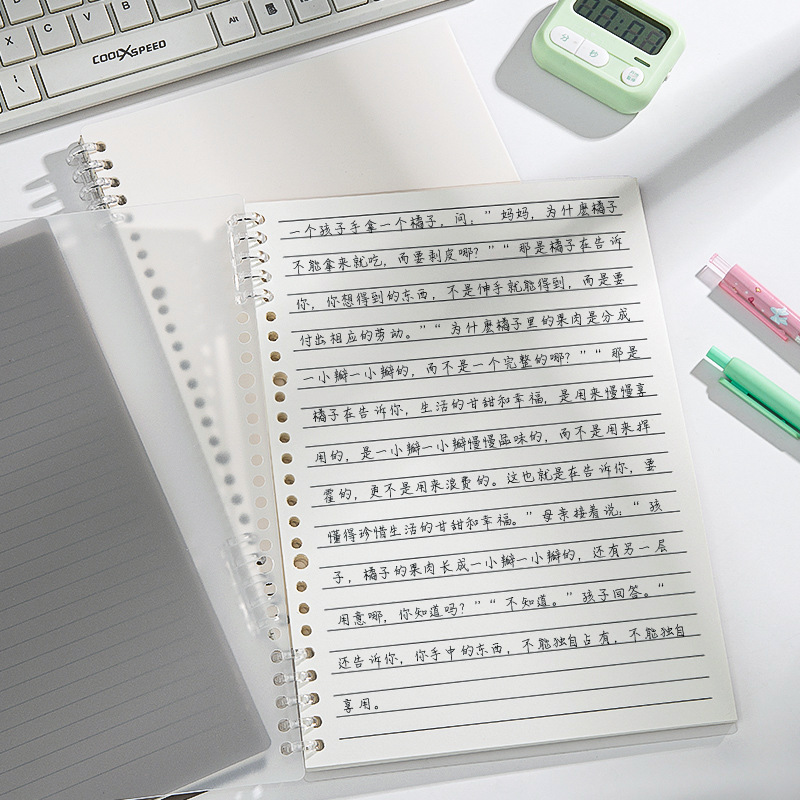 Z
X
C
V
B
Alt
COOLXSPEED
00:00
分
秒
一个孩子手拿一个橘子，问：”妈妈，为什麽橘子
不能拿来就吃，而要剥皮哪？”“那是橘子在告诉
你，你想得到的东西，不是伸手就能得到，而是要
付出相应的劳动。”“为什麽橘子里的果肉是分成
一小瓣一小瓣的，而不是一个完整的哪？”“那是
橘子在告诉你，生活的甘甜和幸福，是用来慢慢享
用的，是一小瓣一小瓣慢慢品味的，而不是用来挥
霍的，更不是用来浪费的。这也就是在告诉你，要
懂得珍惜生活的甘甜和幸福。”母亲接着说：“孩
子，橘子的果肉长成一小瓣一小瓣的，还有另一层
用意哪，你知道吗？”“不知道。”孩子回答。“
还告诉你，你手中的东西，不能独自占有，不能独自
享用。